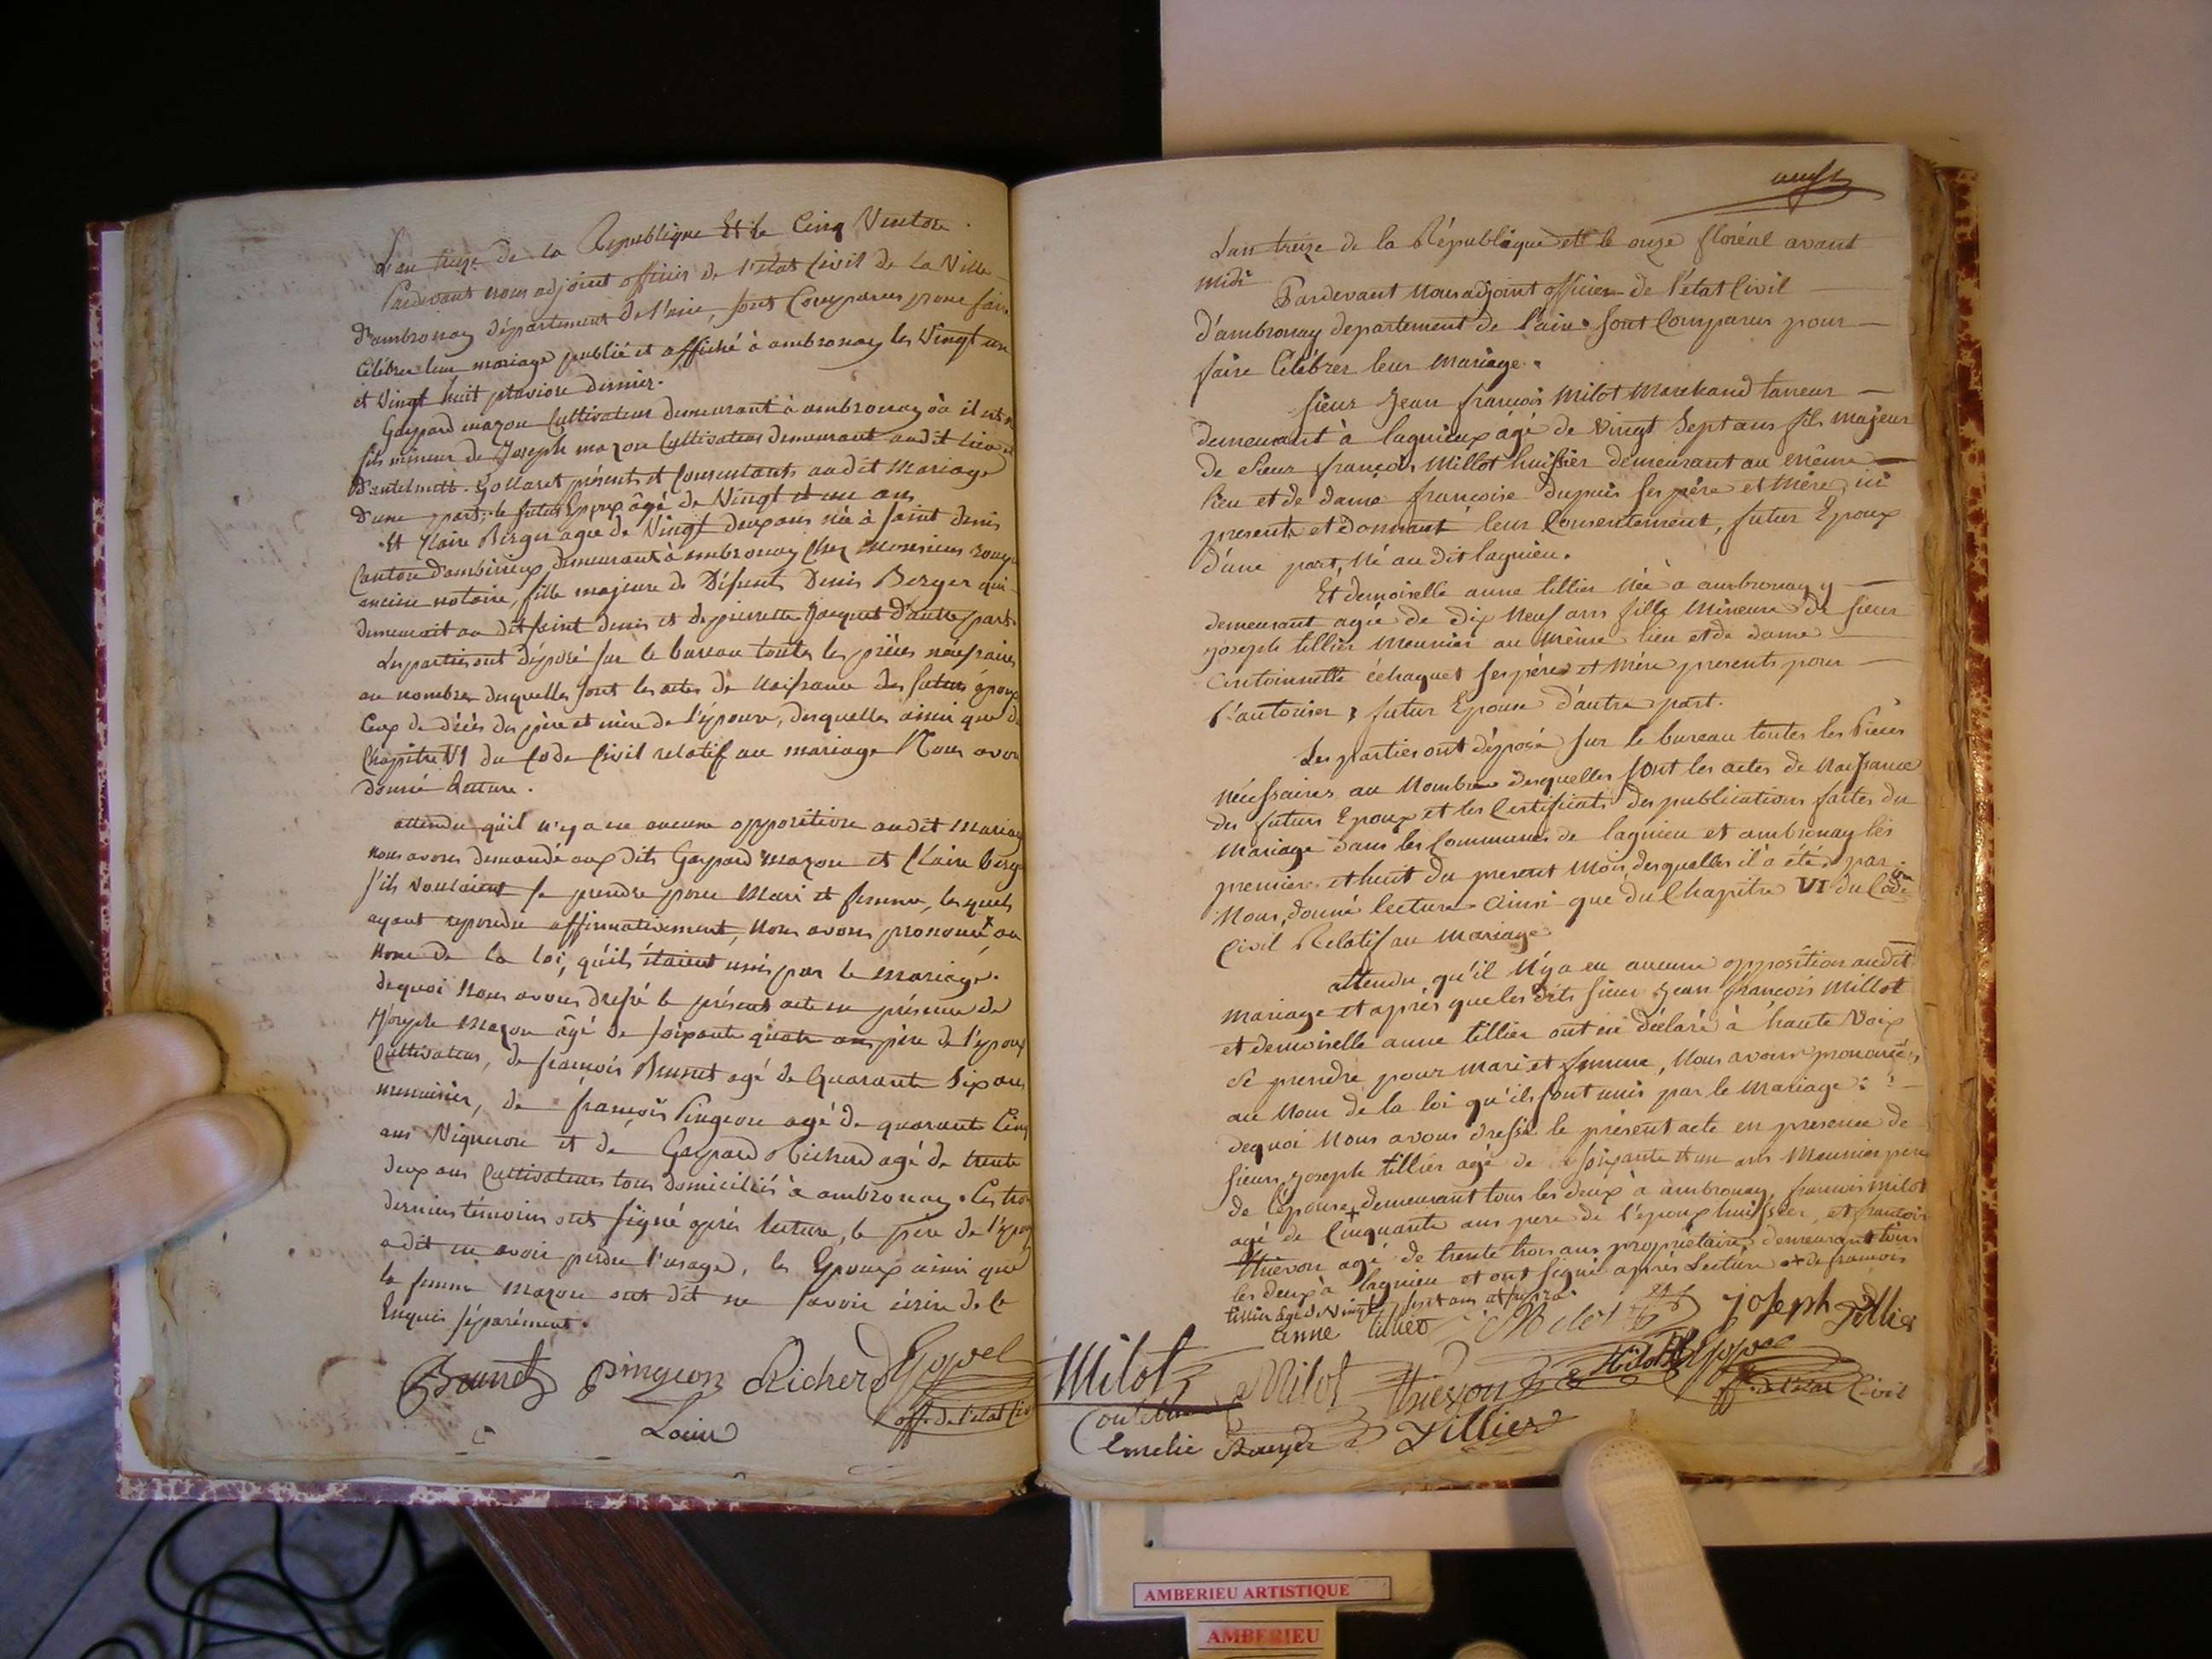 L'an treize de la République Et le Cinq Ventose.
Pardevant nous adjoint officier de l'état Civil de la Ville
d'ambronay département de l'ain, sont Comparus pour faire
Célébrer leur mariage publié et affiché à ambronay les Vingt un
et Vingt huit pluviose dernier.
Gaspard mazon Cultivateur demeurant à ambronay où il est né
fils mineur de Joseph mazon Cultivateur demeurant audit lieu et
Gollaret présents et Consentants audit Mariage
d'une part; le futur Epoux âgé de Vingt et un ans
Et Claire Berger agée de Vingt deux ans née à Saint denis
Canton d'ambérieux demeurant à ambronay Chez Monsieur
ancien notaire, fille majeure de Défunt Denis Berger qui
demeurait au dit saint denis et de pierrette Jacquet d'autre part.
Les parties ont déposé sur le bureau toutes les pièces nécessaires
au nombre desquelles sont les actes de Naissance des futurs époux
Ceux de décès des père et mère de l'épouse, desquelles ainsi que du
Chapitre VI du Code Civil relatif au mariage Nous avons
donné lecture.
attendu qu'il n'y a eu aucune opposition audit Mariage
nous avons demandé aux dits Gaspard Mazon et Claire berger
s'ils voulaient se prendre pour Mari et femme, lesquels
ayant repondu affirmativement, Nous avons prononcé au
Nom de la loi, qu'ils étaient unis par le mariage.
dequoi Nous avons dressé le présent acte en présence de
Joseph Mazon âgé de soixante quatre ans père de l'époux
Cultivateur, de françois Brunet agé de Quarante Six ans
menuisier, de françois Pingeon agé de quarante Cinq
ans Vigneron et de Gaspard Richerd agé de trente
deux ans Cultivateurs tous domiciliés à ambronay. Ces trois
derniers témoins ont signé après lecture, le père de l'époux
a dit en avoir perdu l'usage, les Epoux ainsi que
la femme Mazon ont dit ne savoir écrire de ce
Enquis séparément.
Brunet pingeon Richerd Goyvel
off. de l'état Civil
Louis
neuf
L'an treize de la République et le onze floréal avant
midi
Pardevant Nous adjoint officier de l'état Civil
d'ambronay departement de l'ain. sont Comparus pour
faire Célébrer leur Mariage.
sieur Jean françois Milot Marchand tanneur
demeurant à lagnieux agé de Vingt Sept ans fils majeur
de Sieur françois Millot huissier demeurant au même
lieu et de dame francoise Dupuis ses père et Mère, ici
presents et donnant leur Consentement, futur Epoux
d'une part, Né au dit lagnieu.
Et demoiselle anne tillier Née à ambronay y
demeurant agée de Dix Neuf ans fille Mineure de sieur
joseph tillier Meunier au Même lieu et de dame
Antoinette échaquet ses père et Mère presents pour
l'autoriser, futur Epouse d'autre part.
Les parties ont déposé sur le bureau toutes les Pièces
Nécessaires au Nombre desquelles sont les actes de Naissance
des futurs Epoux et les Certificats des publications faites du
Mariage dans les Communes de lagnieu et ambronay les
premier et huit du present Mois, desquelles il a été par
Nous, donné lecture Ainsi que du Chapitre VI du Code
Civil Relatif au Mariage
attendu qu'il N'y a eu aucune opposition audit
Mariage et après que les dits sieur Jean françois Millot
et demoiselle anne tillier ont eu déclaré à haute Voix
Se prendre pour mari et femme, Nous avons prononcé
au Nom de la loi qu'ils sont unis par le Mariage:
dequoi Nous avons dressé le présent acte en presence de
sieurs joseph tillier agé de soixante et un ans Meunier père
de l'épouse, demeurant tous les deux à ambronay, francois milot
agé de Cinquante ans père de l'époux huissier, et francois
thievon agé de trente trois ans propriétaire demeurant tous
les deux à lagnieu et ont signé après Lecture + de francois
tillier agé de Vingt sept ans
anne tillier Milot joseph Tillier
Milot Milot thievon Milot Goyvel
off. de l'état Civil
Emelie Tillier
AMBERIEU ARTISTIQUE
AMBERIEU